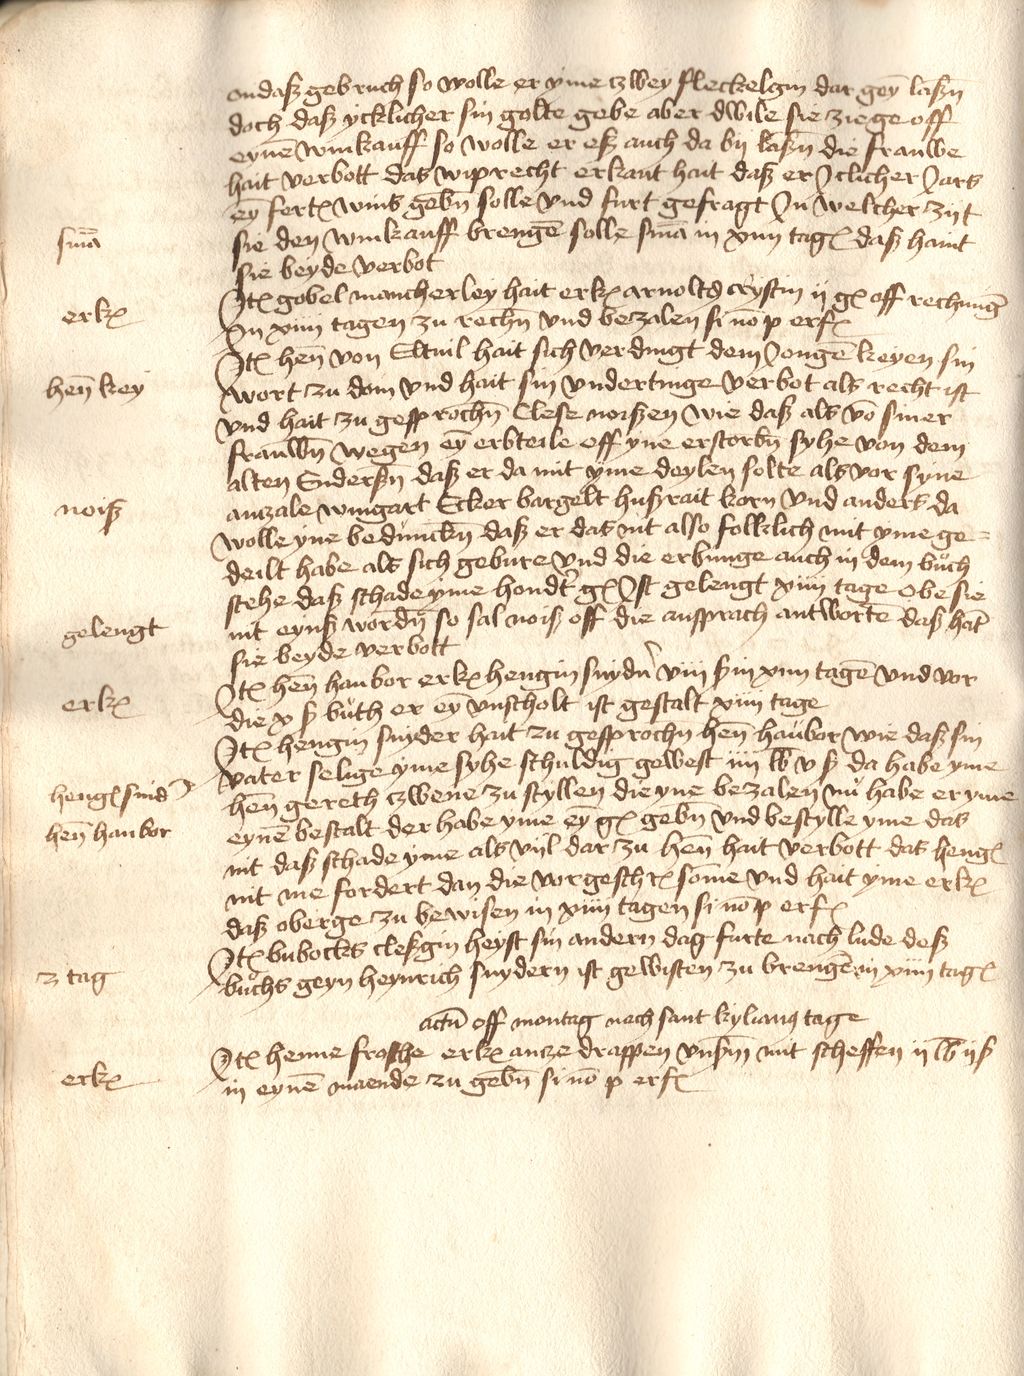 ondaß gebruch so wolle er yme zwey fleckelgin dar geȳ laßn̄
doch daß ycklicher sin golte gebe aber dwile sie ziege off
eynē winkauff so wolle er eß auch da bij laßn̄ die frauwe
hait verbott das wiprecht erkant hait daß er Iclicher Jars
eȳ fert wins gebn̄ solle vnd furt gefragt In welcher zijt
sma
sie den winkauff brengē solle sma in xiiij tag daß haint
sie beyde verbot
Itē gobel mancherley hait erk arnolts crystin ij g off rechnūg
erk
In xiiij tagen zu rechn̄ vnd bezalen si nō p erf
Itē hen̄ von Eltuil hait sich verdingt dem Jongē keyen sin
hen̄ key
wort zu dom vnd hait sin vndertinge verbot als recht ist
vnd hait zu gesprochn̄ Clese noißen wie daß als vō siner
frauwn̄ wegen eȳ erbteile off yne erstorbn̄ syhe von dem
alten Enderßn̄ daß er da mit yme deylen solte als vor syne
noiß
anczale wingart Ecker bargelt hußrait korn vnd anders da
wolle yne beduncken̄ daß er das nit also follclich mit yme ge=
deilt habe als sich gebure vnd die erbunge auch in dem buch
stehe daß schade yme hondt g Ist gelengt xiiij tage Obe sie
gelengt
nit eynß wordn̄ so sal noiß off die ansprach antwortē daß hāt
sie beyde verbott
Itē hen̄ haubor erk hengin snydn̄ viij ß in xiiij tagē vnd vor
erk
die x ß buth er eȳ vnscholt ist gestalt xiiij tage
Itē hengin snyder hait zu gesprochn̄ hen̄ haubor wie daß sin
vater selige yme syhe schuldig gewest iiij lb v ß da habe yme
heng snid
hen̄ gereth zwene zu styllen die yne bezalen nu habe er yme
hen̄ haubor
eynē bestalt der habe yme eȳ g gebn̄ vnd bestylle yme das
nit daß schade yme als vijl dar zu hen̄ hait verbott das heng
nit me fordert dan die vorgeschr some vnd hait yme erk
daß oberge zu bewisen in xiiij tagen si nō p erf
Itē bubocks cleßgin heyst sin andern dag furte nach lude deß
z tag
buchs geyn heynrich snydern ist gewisten zu brengē in xiiij tag
actū off montag nach sant kylians tage
Itē henne frosche erk ancze drappen vnßm̄ mit scheffen ij lb ij ß
erk
in eynē maende zu gebn̄ si nō p erf